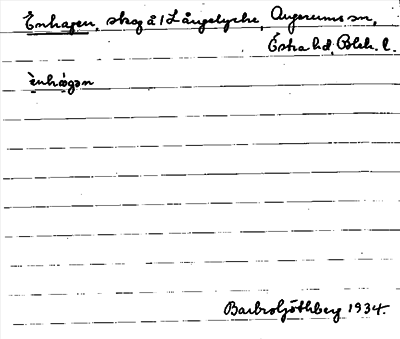 Enhagen, skog å 1 Långelycke, Augerums sn,
Östra hd, Blek. l.
ènhàgən
Barbro Göthberg 1934.